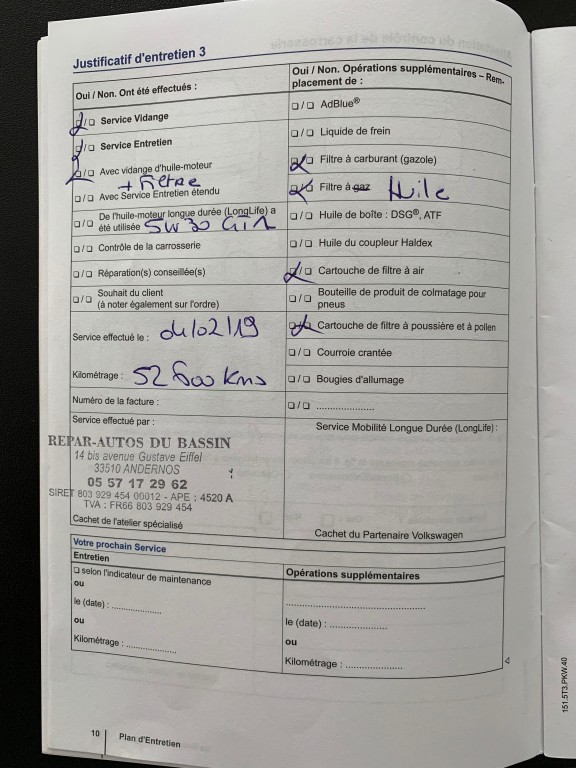 Justificatif d'entretien 3
Oui / Non. Ont été effectués :
❏/❏ Service Vidange
❏/❏ Service Entretien
❏/❏ Avec vidange d'huile-moteur
+ Filtre
❏/❏ Avec Service Entretien étendu
❏/❏ De l'huile-moteur longue durée (LongLife) a
été utilisée 5W30
❏/❏ Contrôle de la carrosserie
❏/❏ Réparation(s) conseillée(s)
❏/❏ Souhait du client
(à noter également sur l'ordre)
Service effectué le : 04/02/19
Kilométrage : 52 600 Kms
Numéro de la facture :
Service effectué par :
REPAR-AUTOS DU BASSIN
14 bis avenue Gustave Eiffel
33510 ANDERNOS
05 57 17 29 62
SIRET 803 929 454 00012 - APE : 4520 A
TVA : FR66 803 929 454
Cachet de l'atelier spécialisé
Oui / Non. Opérations supplémentaires – Rem-
placement de :
❏/❏ AdBlue®
❏/❏ Liquide de frein
❏/❏ Filtre à carburant (gazole)
❏/❏ Filtre à gaz Huile
❏/❏ Huile de boîte : DSG®, ATF
❏/❏ Huile du coupleur Haldex
❏/❏ Cartouche de filtre à air
❏/❏ Bouteille de produit de colmatage pour
pneus
❏/❏ Cartouche de filtre à poussière et à pollen
❏/❏ Courroie crantée
❏/❏ Bougies d'allumage
❏/❏ .....................
Service Mobilité Longue Durée (LongLife) :
Cachet du Partenaire Volkswagen
Votre prochain Service
Entretien
❏ selon l'indicateur de maintenance
ou
le (date) : ..................
ou
Kilométrage : ..................
Opérations supplémentaires
..........................................
le (date) : ..................
ou
Kilométrage : ..................
10 Plan d'Entretien
151.5T3.PKW.40